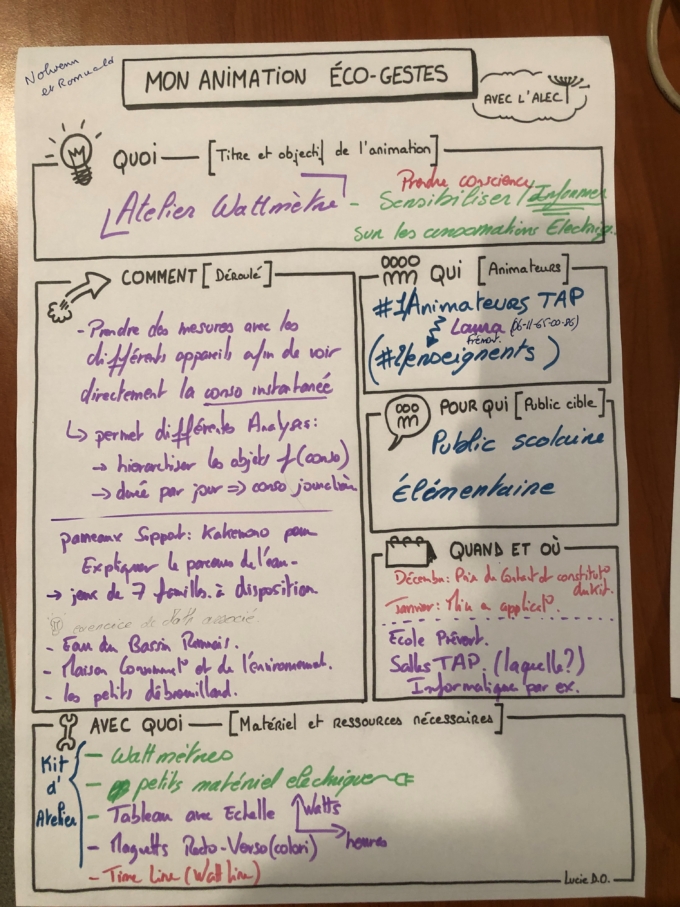 Nolwenn
et Romuald
MON ANIMATION ÉCO-GESTES
AVEC L'ALEC
QUOI [Titre et objectif de l'animation]
Prendre conscience
Atelier Wattmètre - Sensibiliser / Informer
sur les consomations Electriq.
COMMENT [Déroulé]
- Prendre des mesures avec les
différents appareils afin de voir
directement la conso instantanée
↳ permet différentes Analyses:
→ hierarchiser les objets f(conso)
→ durée par jour => conso journalière
panneaux Support: Kakemono pour
Expliquer le parcours de l'eau-
→ jeux de 7 familles à disposition
exercice de Math associé
- Eau du Bassin Rennais.
- Maison Consommat° et de l'environnemt.
- les petits débrouillard.
QUI [Animateurs]
#1/Animateurs TAP
Laura
(#2/enseignents)
POUR QUI [Public cible]
Public scolaire
élémentaire
QUAND ET OÙ
Décembre: Prise de Contact et constitut°
du kit.
Janvier: Mise en applicat°.
Ecole Prévert.
Salles TAP. (laquelle?)
Informatique par ex.
AVEC QUOI [Matériel et ressources nécessaires]
Kit
d'
Atelier
- Wattmètres
- petits matériel electrique
- Tableau avec Echelle Watts
heures
- Magnetts Recto-Verso (colori)
- Time Line (Watt line)
Lucie D.O.